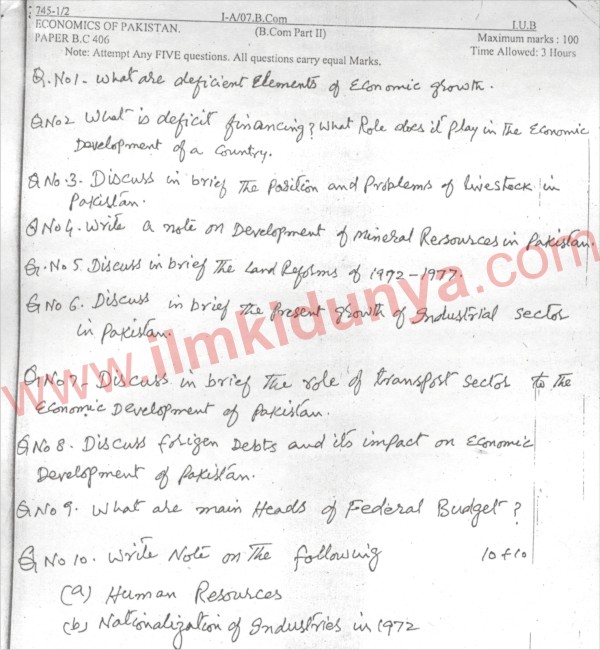 745-1/2
I-A/07.B.Com
ECONOMICS OF PAKISTAN.
(B.Com Part II)
I.U.B
PAPER B.C 406
Maximum marks : 100
Note: Attempt Any FIVE questions. All questions carry equal Marks.
Time Allowed: 3 Hours
Q.No1- What are deficient Elements of Economic growth.
Q No2 What is deficit financing? What Role does it play in The Economic
Development of a Country.
Q No.3. Discuss in brief The Position and Problems of livestock in
Pakistan.
Q No 4. Write a note on Development of Mineral Resources in Pakistan.
Q. No 5. Discuss in brief The Land Reforms of 1972-1977.
Q No 6. Discuss in brief The Present growth of Industrial sector
in Pakistan.
Q No 7- Discuss in brief The role of transport sector to the
Economic Development of Pakistan.
Q No 8. Discuss forigen Debts and its impact on Economic
Development of Pakistan.
Q No 9. What are main Heads of Federal Budget?
Q No 10. Write Note on The following 10+10
(a) Human Resources
(b) Nationalization of Industries in 1972
www.ilmkidunya.com